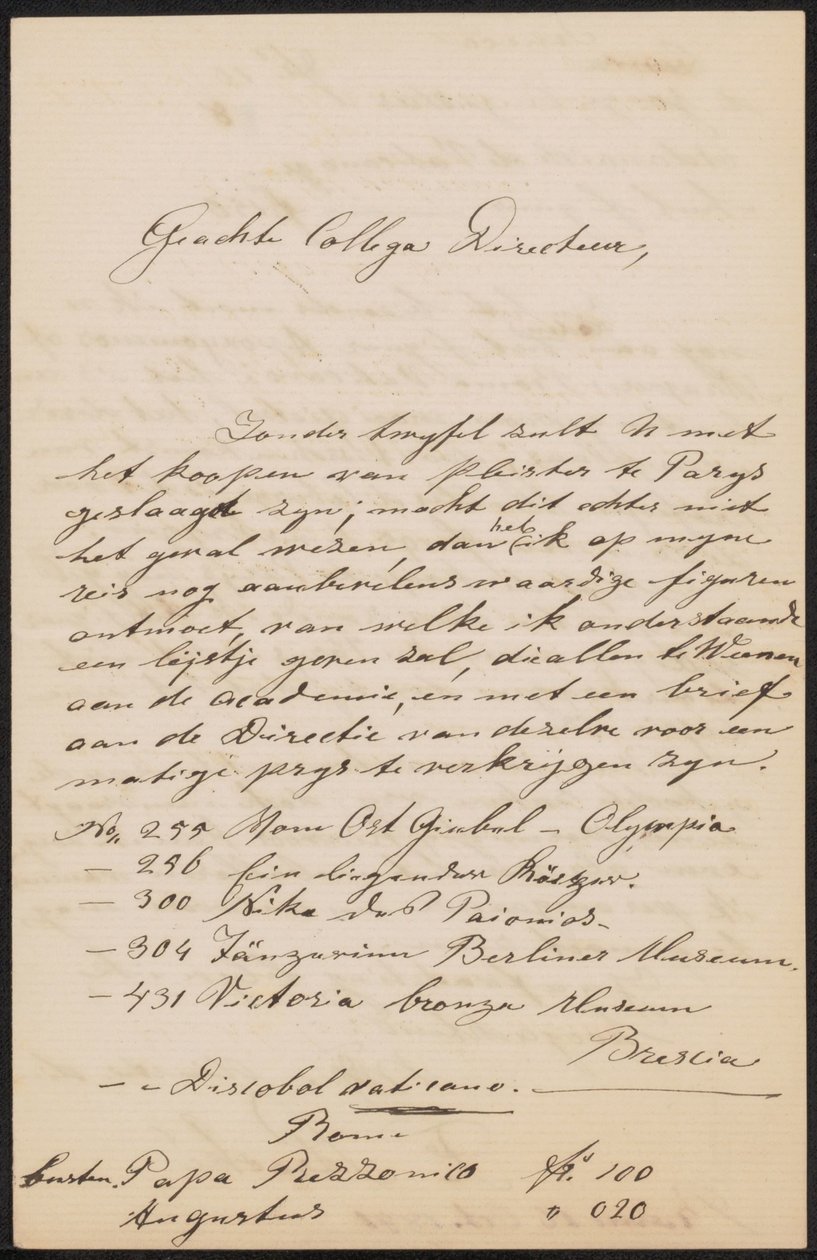 Geachte Collega Directeur,
Zonder twyfel zult U met
het koopen van pleister te Parys
geslaagd zyn; mocht dit echter niet
het geval wezen, dan heb ik op myne
reis nog aanbevelenswaardige figuren
ontmoet, van welke ik onderstaande
een lijstje geven zal, die allen te Weenen
aan de academie, en met een brief
aan de Directie van dezelve voor een
matige prys te verkrijgen zyn.
No. 255 Vom Ost Giebel – Olympia
– 256 Ein liegender
– 300 Nike des Paionios –
– 304 Tänzerinn Berliner Museum.
– 431 Victoria bronze Museum
Brescia
– „ Discobol vaticano.
Rome
busten. Papa Rezzonico fr. 100
Augustus „ 020